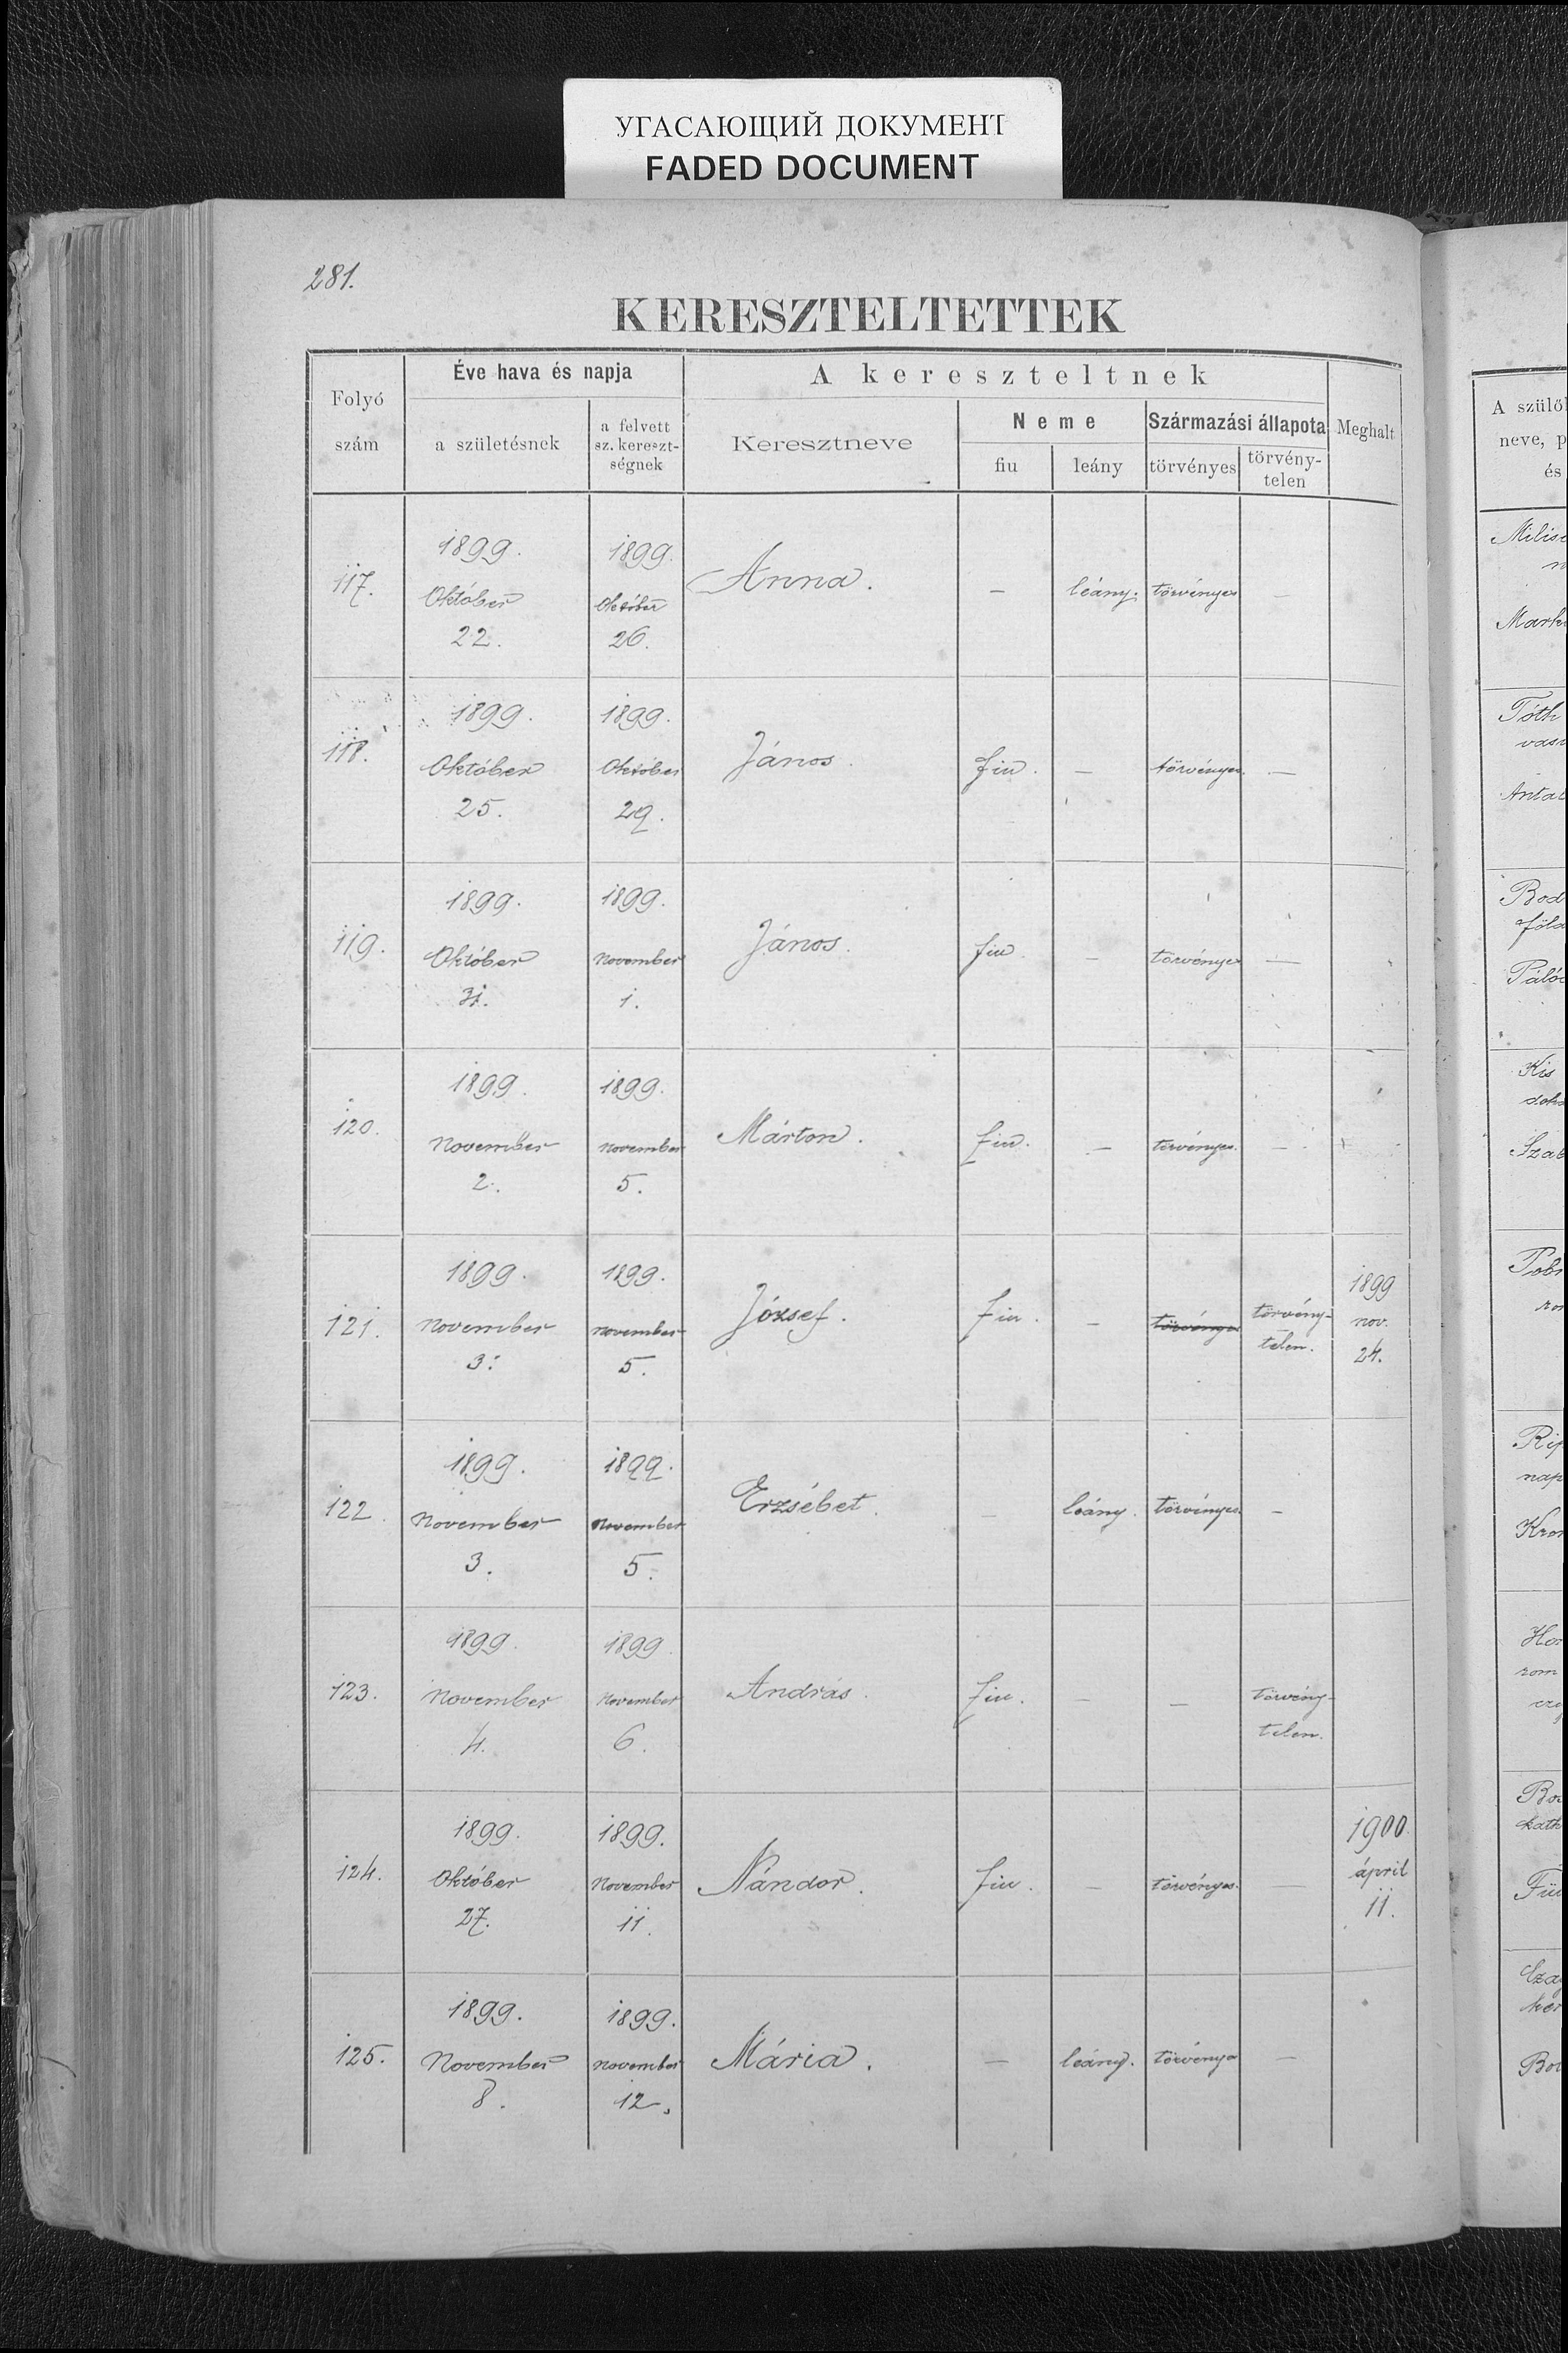 УГАСАЮЩИЙ ДОКУМЕНТ
FADED DOCUMENT
281.
KERESZTELTETTEK
Folyó szám
Éve hava és napja
a születésnek
a felvett sz. kereszt-ségnek
A kereszteltnek
Keresztneve
Neme
fiu
leány
Származási állapota
törvényes
törvény-telen
Meghalt
117. 1899. Október 22. 1899. Október 26. Anna. — leány. törvényes —
118. 1899. Október 25. 1899. Október 29. János. fiu. — törvényes. —
119. 1899. Október 31. 1899. November 1. János. fiu. — törvényes —
120. 1899. November 2. 1899. November 5. Márton. fiu. — törvényes. —
121. 1899. November 3. 1899. november 5. József. fiu. — törvényes törvény-telen. 1899 nov. 24.
122. 1899. November 3. 1899. November 5. Erzsébet. — leány. törvényes. —
123. 1899. November 4. 1899 November 6. András. fiu. — — törvény-telen.
124. 1899. Október 27. 1899. November 11. Nándor. fiu. — törvényes. — 1900. ápril 11.
125. 1899. November 8. 1899. november 12. Mária. — leány. törvényes —
A szülő
neve, p
és
Tóth
Antal
Bod
föld
Palóc
Kis
Szab
Kro
Bo
kath